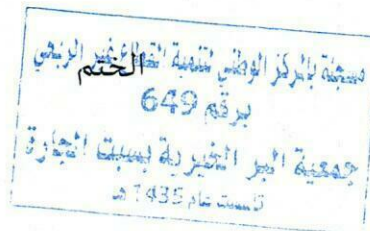 مسجلة بالمركز الوطني لتنمية القطاع غير الربحي
الختم
برقم 649
جمعية البر الخيرية بسبت الجارة
تأسست عام 1435 هـ